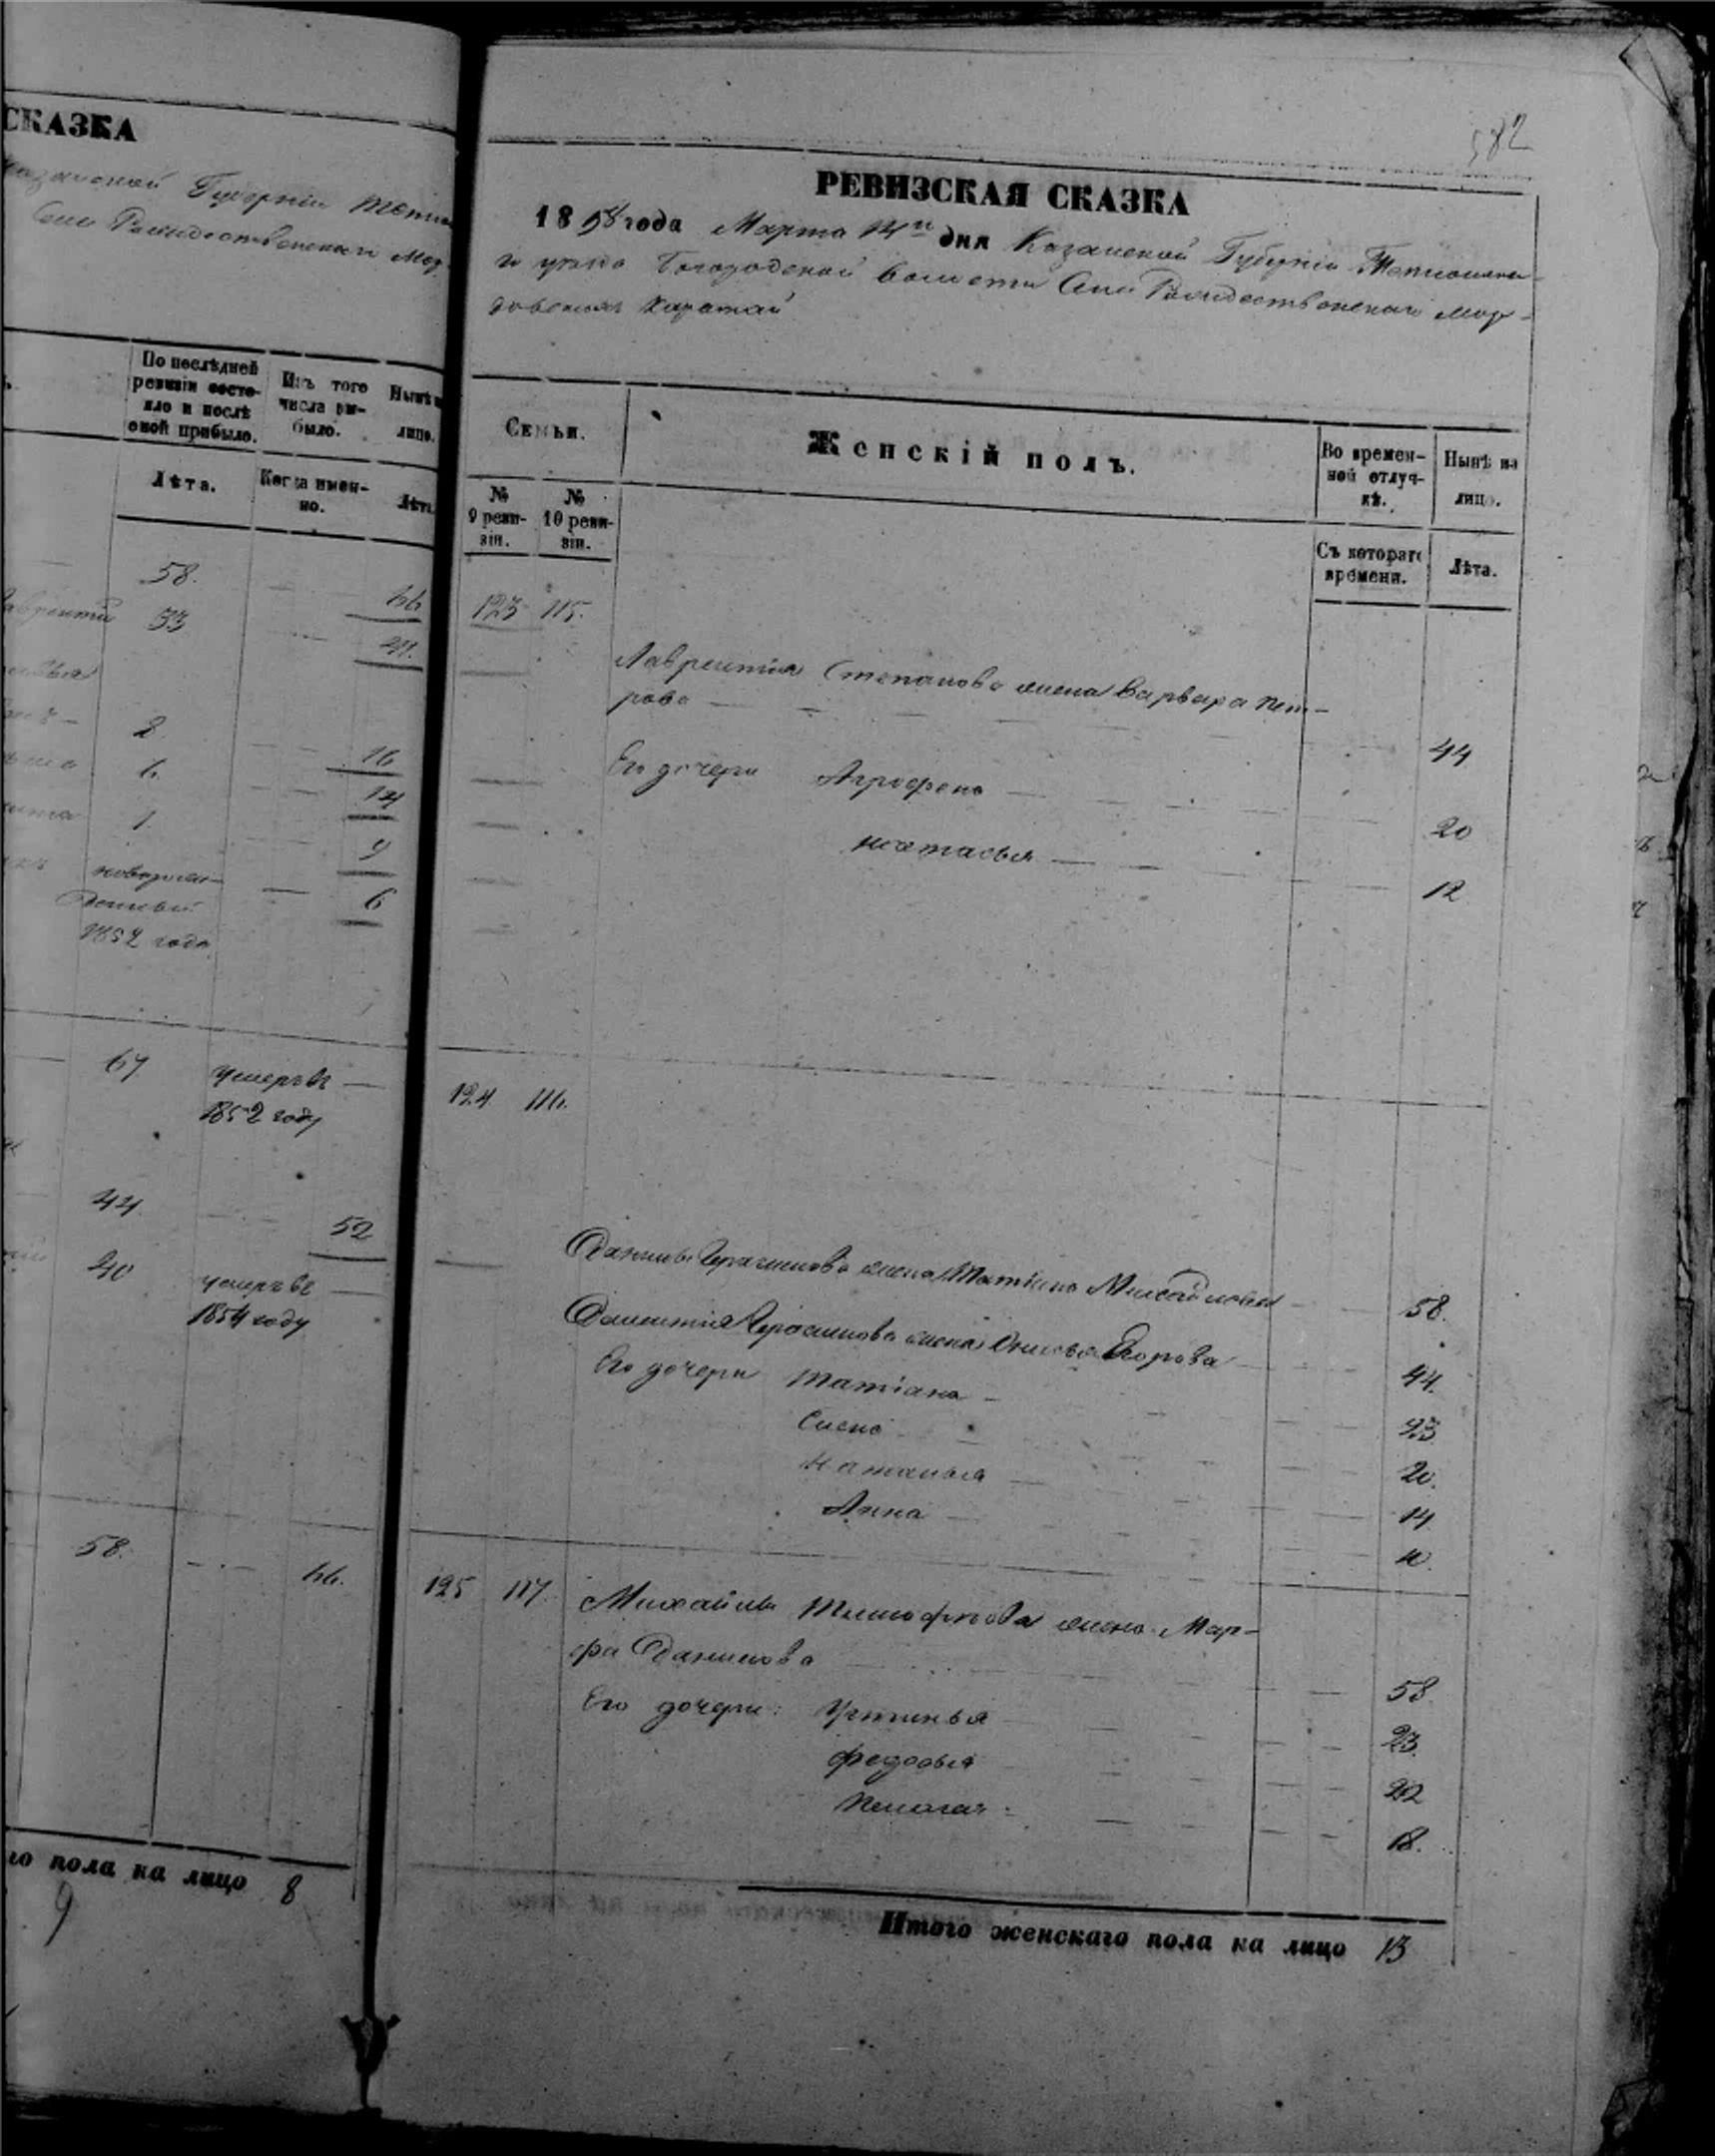 СКАЗКА
Казанской Губерніи
Села Рождественскаго Мор
По послѣдней
ревизіи состо-
яло и послѣ
оной прибыло.
Изъ того
числа вы-
было.
Нынѣ
лицо.
Лѣта.
Когда имен-
но.
Лѣта
58.
66
Лаврентій 33
41.
2
16
6.
14
1.
9
новорож-
денный
1852 года
6
67
умеръ въ
1852 году
44.
52
40
умеръ въ
1854 году
58.
66.
го пола на лицо 8
9
582
РЕВИЗСКАЯ СКАЗКА
1858 года Марта 14го дня Казанской Губерніи Тетюшска-
го уѣзда Богородской волости Села Рождественскаго Мор-
довскихъ Каратай
Семьи.
Женскій полъ.
Во времен-
ной отлуч-
кѣ.
Нынѣ на
лицо.
№
9 реви-
зіи.
№
10 реви-
зіи.
Съ котораго
времени.
Лѣта.
123 115.
Лаврентія Степанова жена Варвара Пет-
рова 44
Его дочери Агрофена 20
Настасья 12
124 116.
Данилы Герасимова жена Матіяна Михайлова 58.
Дементія Герасимова жена Анисья Егорова 44.
Его дочери Татіана 23
Елена 20.
Наталья 14
Анна 10.
125 117. Михайлы Тимофѣева жена Мар-
фа Данилова 58.
Его дочери: Устинья 23.
Федосья 22
Пелагея 18.
Итого женскаго пола на лицо 13